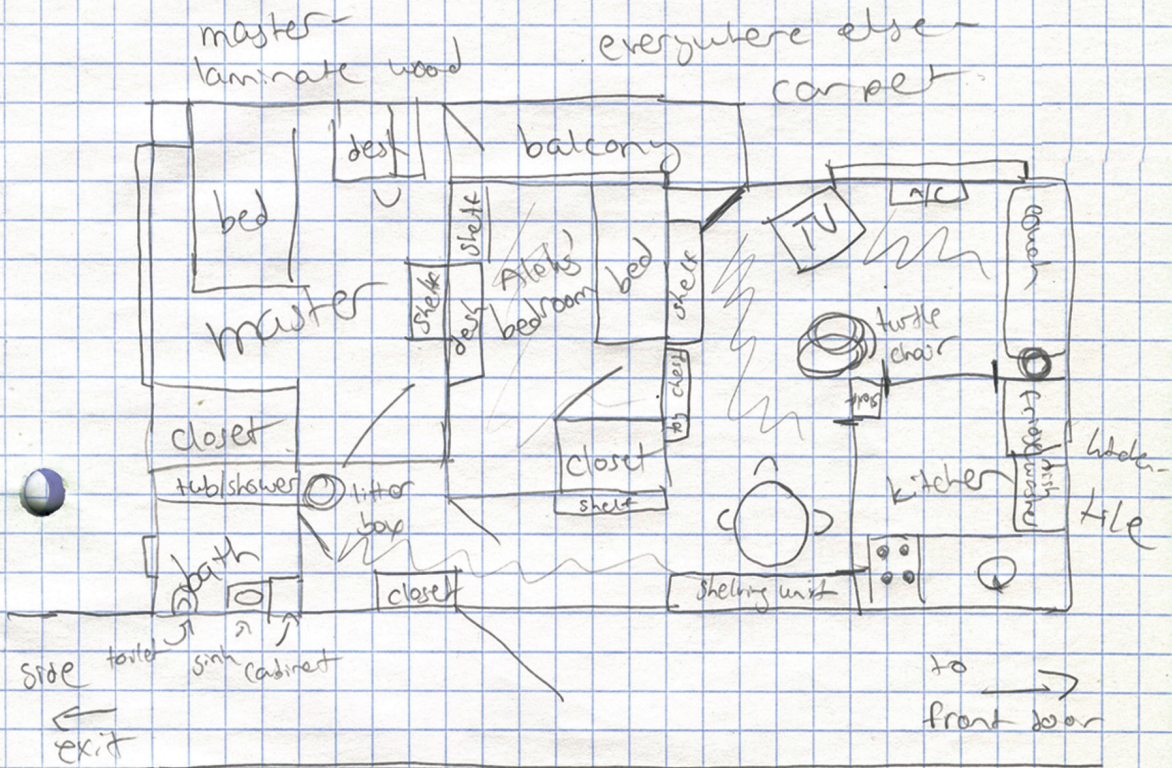 master-
laminate wood
everywhere else-
carpet
desk
balcony
bed
shelf
Alohs'
bedroom
bed
shelf
TV
A/C
couch
master
shelf
desk
turtle
chair
toy chest
fridge
closet
closet
shelf
tub/shower
litter
box
kitchen
dish
washer
tile
bath
closet
shelving unit
toilet
sink
cabinet
side
exit
to
front door